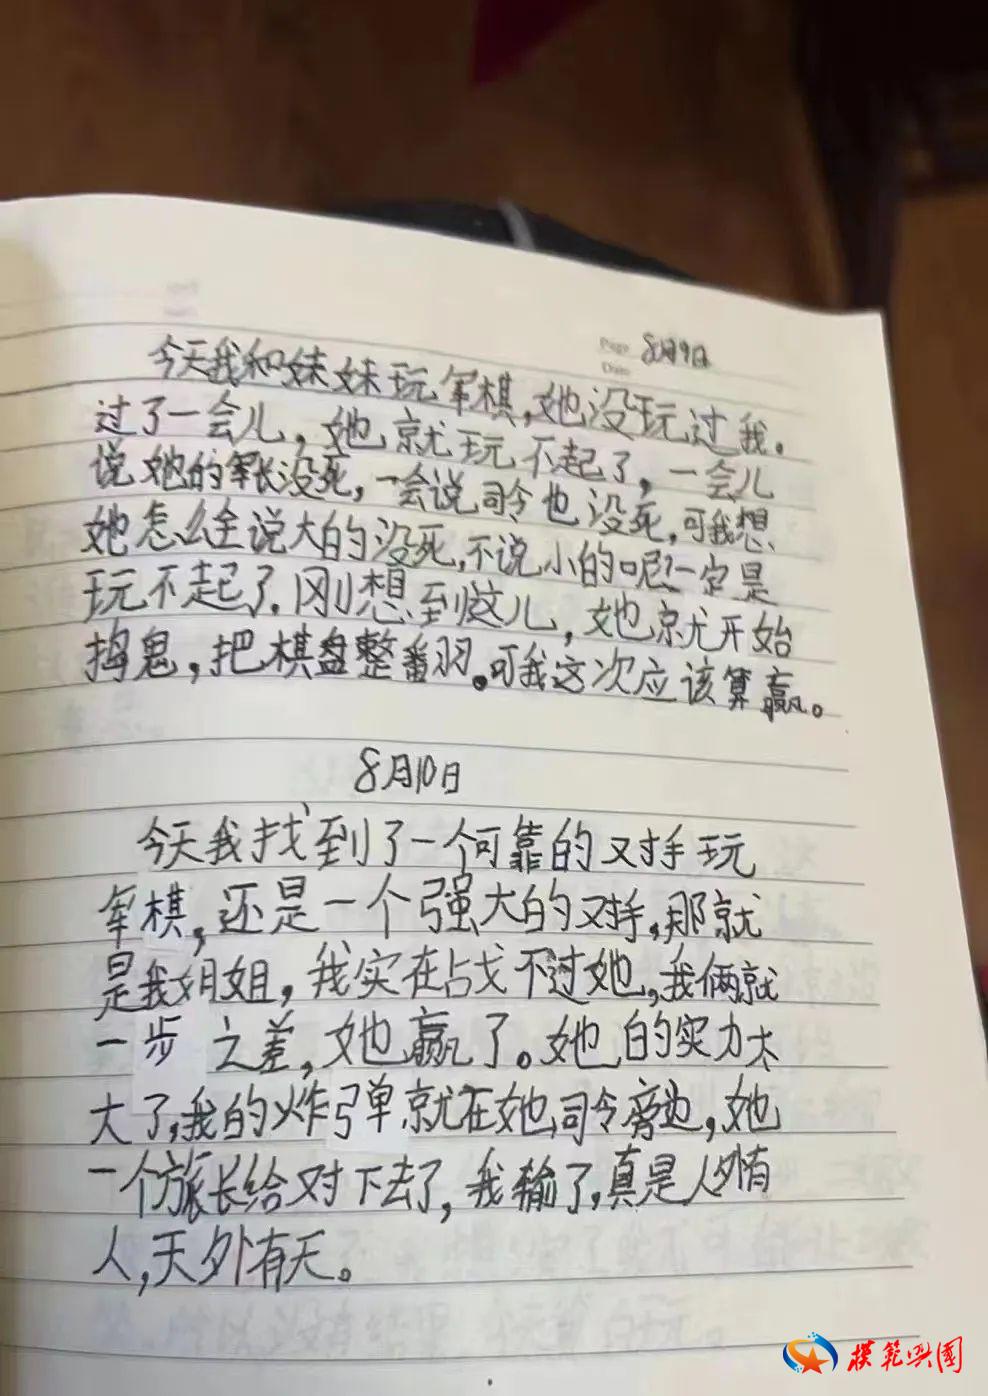 Page 8月9日
Date
今天我和妹妹玩军棋,她没玩过我。
过了一会儿,她就玩不起了,一会儿
说她的军长没死,一会说司令也没死,可我想
她怎么全说大的没死,不说小的呢?一定是
玩不起了.刚想到这儿,她就开始
捣鬼,把棋盘整番羽。可我这次应该算赢。
8月10日
今天我找到了一个可靠的对手玩
军棋,还是一个强大的对手,那就
是我姐姐,我实在占戈不过她,我俩就
一步之差,她赢了。她的实力太
大了,我的炸弹就在她司令旁边,她
一个旅长给对下去了,我输了,真是人外有
人,天外有天。
模範興國